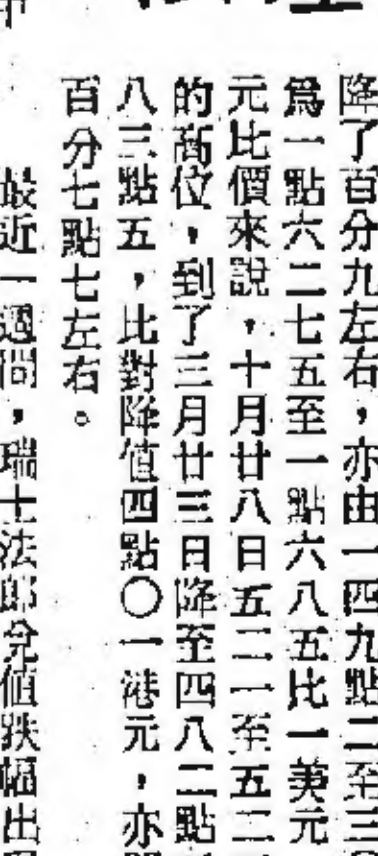 降了百分九左右，亦由一四九點二至三
爲一點六二七五至一點六八五比一美元
元比價來說，十月廿八日五二一至五二
的高位，到了三月廿三日降至四八二點
八三點五，比對降值四點〇一港元，亦
百分七點七左右。
最近一週間，瑞士法郎兌值跌幅出